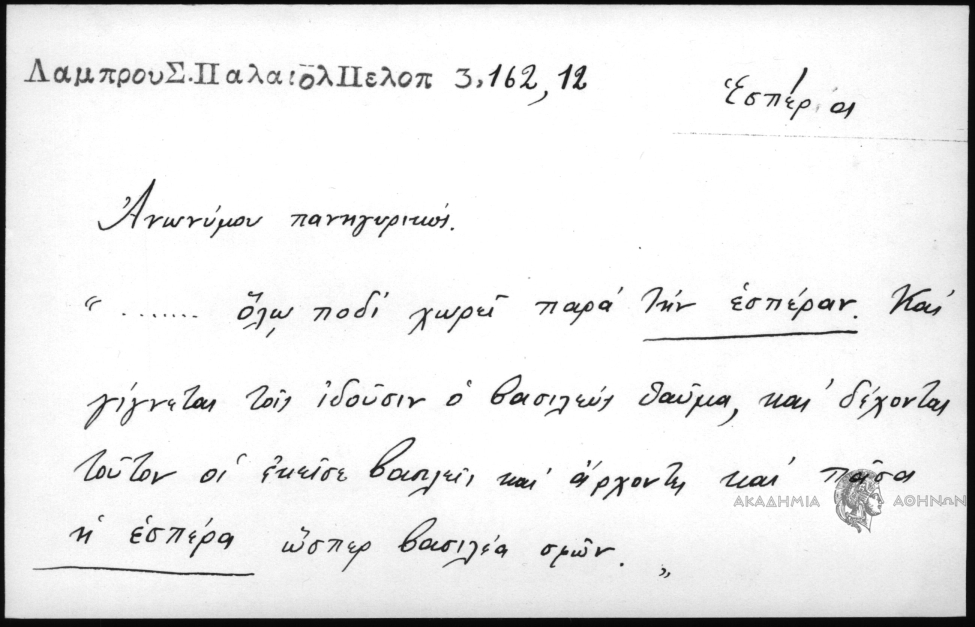 ΛαμπρουΣ.ΠαλαιολΠελοπ 3,162,12
Ἑσπέρα
Ἀνωνύμου πανηγυρικός.
“ ....... ὅλῳ ποδί χωρεῖ παρά τήν ἑσπέραν. Καί
γίγνεται τοῖς ἰδοῦσιν ὁ βασιλεύς θαῦμα, καί δέχονται
τοῦτον οἱ ἐκεῖσε βασιλεῖς καί ἄρχοντες καί πᾶσα
ἡ ἑσπέρα ὥσπερ βασιλέα σφῶν. „
ΑΚΑΔΗΜΙΑ ΑΘΗΝΩΝ